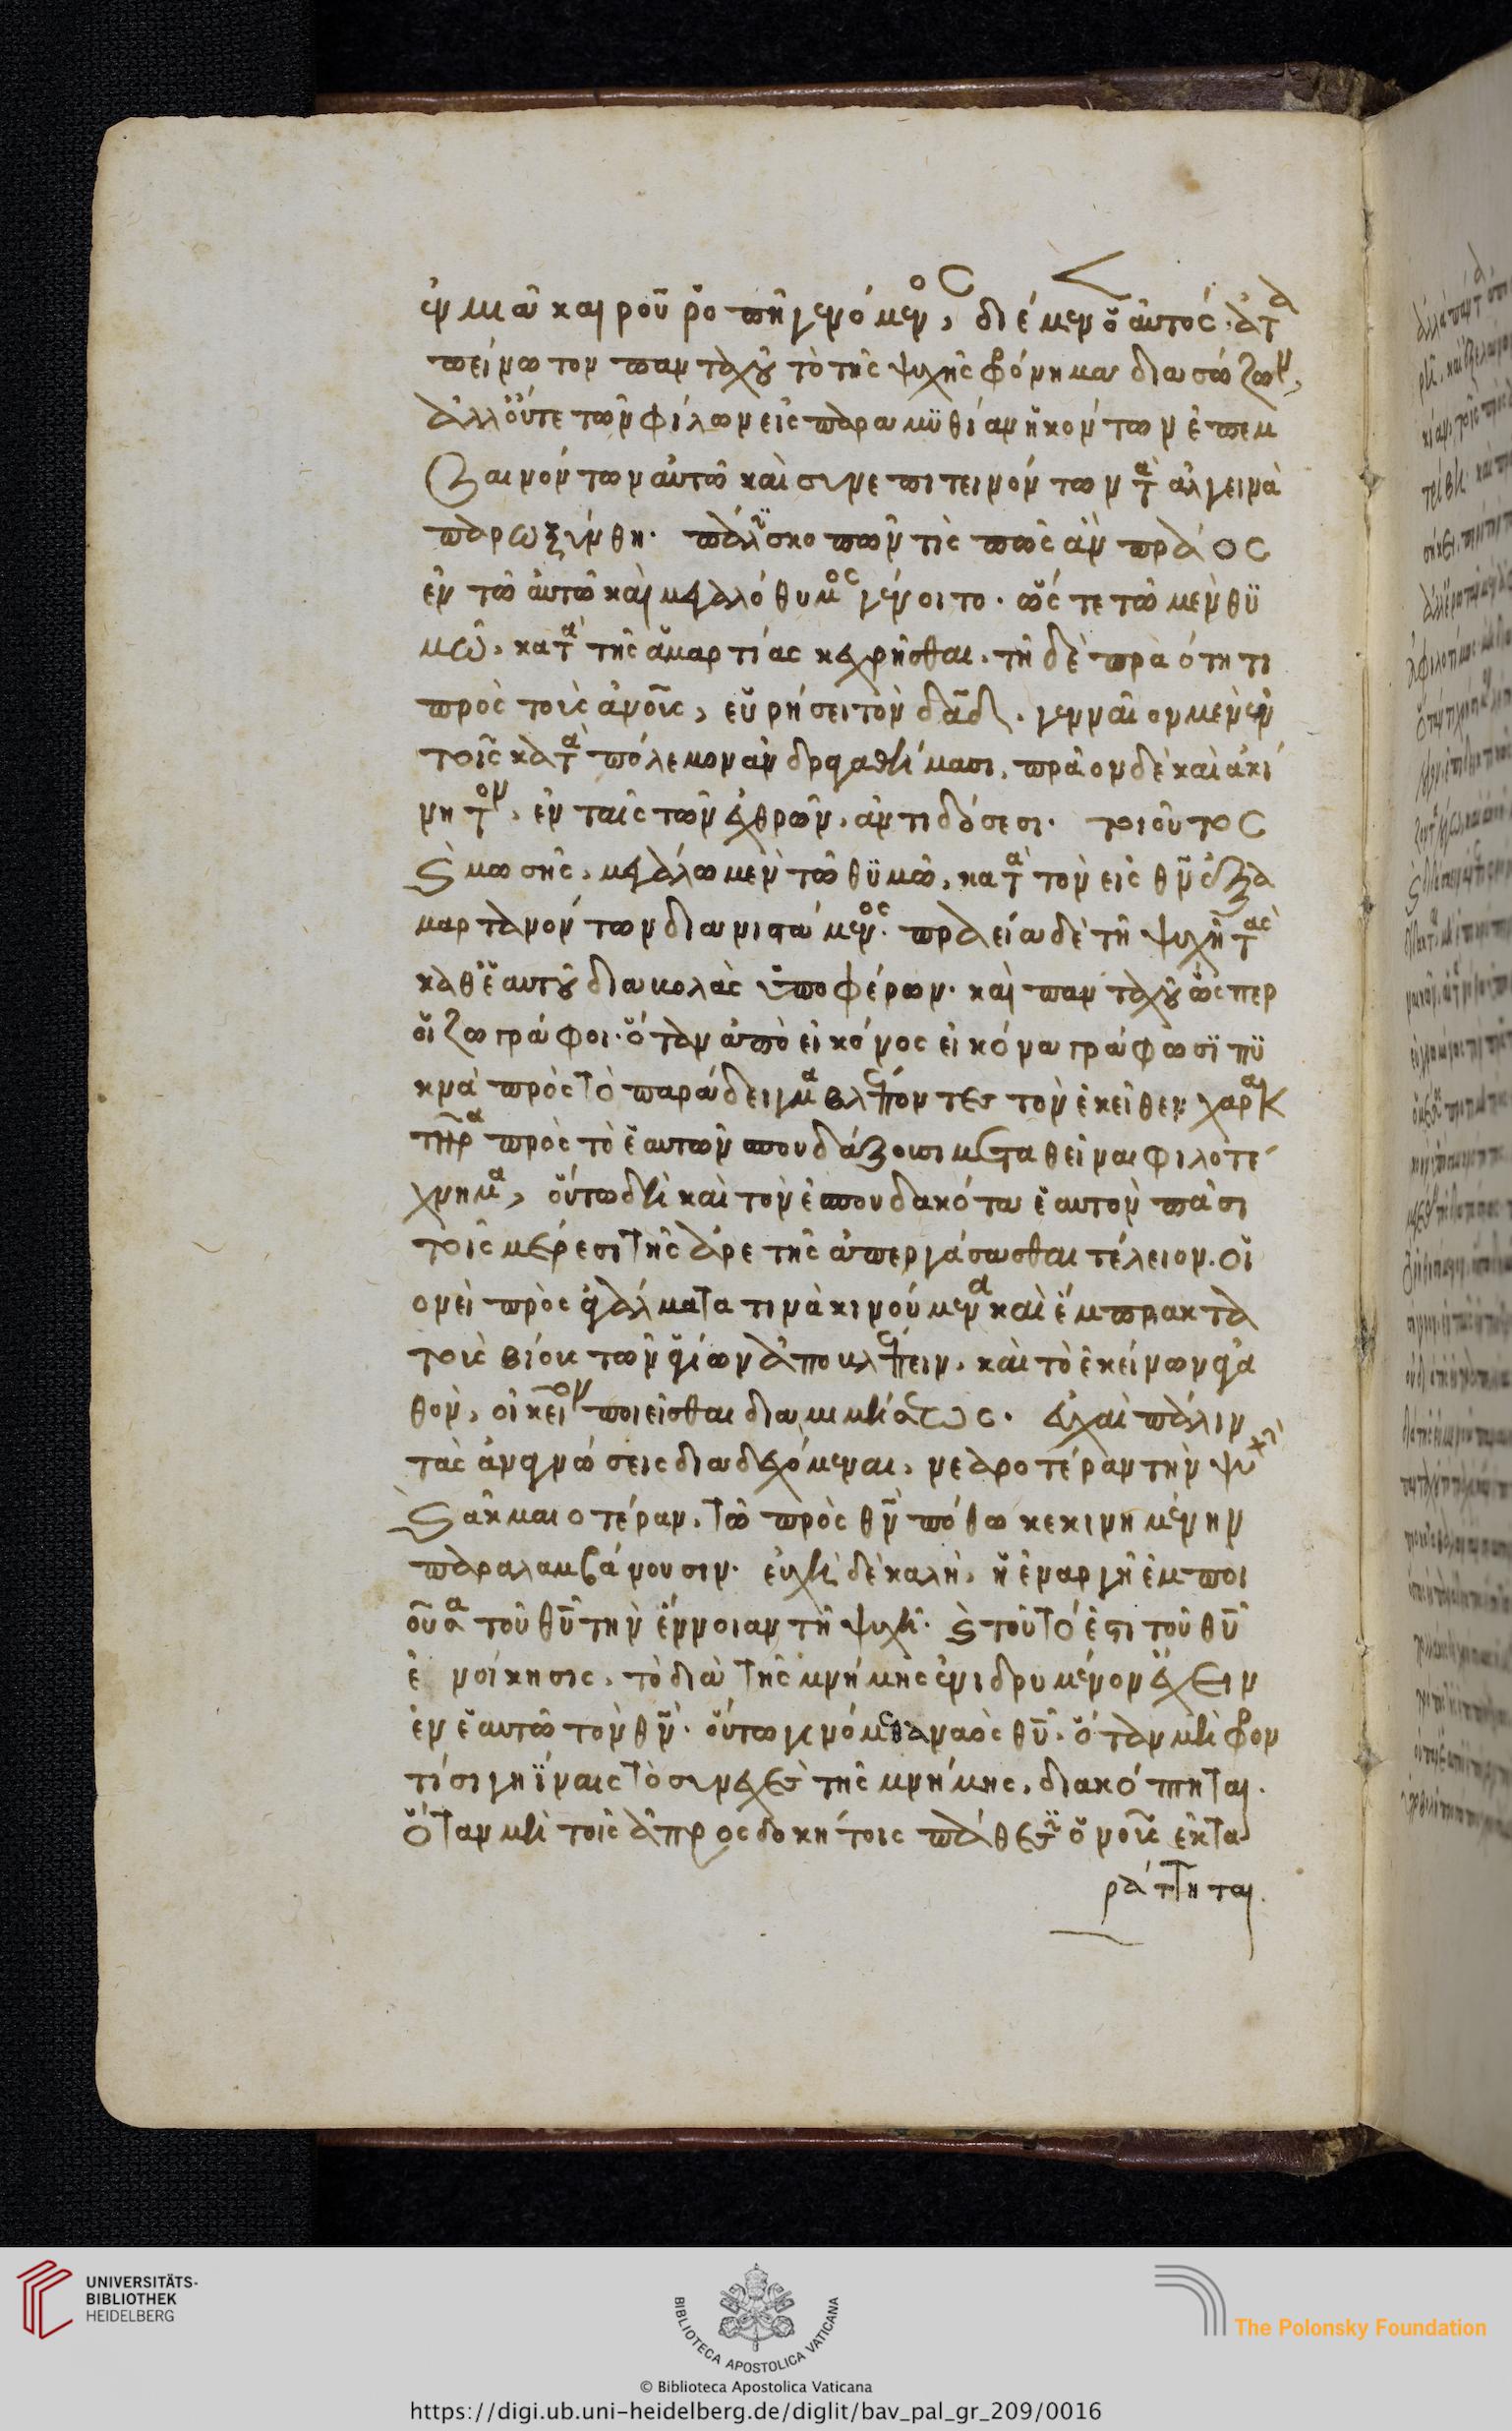 ἐν μιᾶ καιροῦ ῥοπῆ γενόμενος, διέμενεν ὁ αὐτός· ἀτα
πείνωτον πανταχοῦ τὸ τῆς ψυχῆς φρόνημα διασώζων,
ἀλλ' οὔτε τῶν φίλων εἰς παραμυθίαν ἡκόντων ἐπεμ
βαινόντων αὐτῶ καὶ συνεπιτεινόντων τὰ ἀλγεινὰ
παρωξύνθη. πάλιν σκοπῶν τὶς πῶς ἂν πρᾶος
ἐν τῶ αὐτῶ καὶ μεγαλόθυμος γένοιτο. ὥστε τῶ μὲν θυ
μῶ, κατὰ τῆς ἁμαρτίας κεχρῆσθαι, τῆ δὲ πραότητι
πρὸς τοὺς ἀνους, εὑρήσει τὸν δαδ. γενναῖον μὲν ἐν
τοῖς κατὰ πόλεμον ἀνδραγαθήμασι, πρᾶον δὲ καὶ ἀκί
νητον, ἐν ταῖς τῶν ἐχθρῶν, ἀντιδόσεσι. τοιοῦτος
καὶ μωσῆς, μεγάλω μὲν τῶ θυμῶ, κατὰ τῶν εἰς θν ἐξα
μαρτανόντων διανιστάμενος. πραεία δὲ τῆ ψυχῆ τὰς
καθ' ἑαυτοῦ διαβολὰς ὑποφέρων. καὶ πανταχοῦ ὥσπερ
οἱ ζωγράφοι. ὅταν ἀπὸ εἰκόνος εἰκόνα γράφωσι πυ
κνὰ πρὸς τὸ παράδειγμα βλέποντες τὸν ἐκεῖθεν χαρακ
τῆρα πρὸς τὸ ἑαυτῶν σπουδάζουσι μεταθεῖναι φιλοτέ
χνημα, οὕτω δεῖ καὶ τὸν ἐσπουδακότα ἑαυτὸν πᾶσι
τοῖς μέρεσι τῆς ἀρετῆς ἀπεργάσασθαι τέλειον. οἱ
ονεὶ πρὸς ἀγάλματα τινὰ κινούμενα καὶ ἔμπρακτα
τοὺς βίους τῶν ἁγίων ἀποβλέπειν, καὶ τὸ ἐκείνων ἀγα
θὸν, οἰκεῖον ποιεῖσθαι διὰ μιμήσεως. εὐχαὶ πάλιν
τὰς ἀναγνώσεις διαδεχόμεναι, νεαροτέραν τὴν ψυχὴν
καὶ ἀκμαιοτέραν, τῶ πρὸς θν πόθω κεκινημένην
παραλαμβάνουσιν. εὐχὴ δὲ καλὴ, ἡ ἐναργῆ ἐμποι
οῦσα τοῦ θυ τὴν ἔννοιαν τῆ ψυχῆ. καὶ τοῦτό ἐστι τοῦ θυ
ἐνοίκησις, τὸ διὰ τῆς μνήμης ἐνιδρυμένον ἔχειν
ἐν ἑαυτῶ τὸν θν. οὕτω γινόμεθα ναὸς θυ. ὅταν μὴ φρον
τίσι γηΐναις τὸ συνεχὲς τῆς μνήμης, διακόπηται.
ὅταν μὴ τοῖς ἀπροσδοκήτοις πάθεσιν ὁ νοῦς ἐκτα
ράττηται.
UNIVERSITÄTS-
BIBLIOTHEK
HEIDELBERG
BIBLIOTECA APOSTOLICA VATICANA
The Polonsky Foundation
© Biblioteca Apostolica Vaticana
https://digi.ub.uni-heidelberg.de/diglit/bav_pal_gr_209/0016